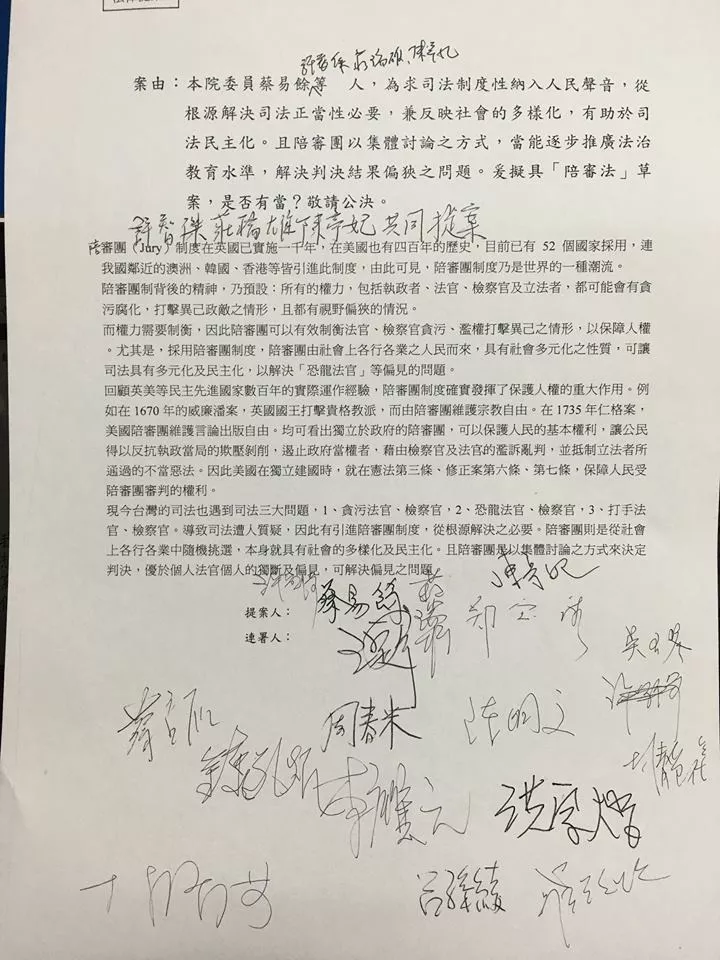 案由：本院委員蔡易餘等 人，為求司法制度性納入人民聲音，從
根源解決司法正當性必要，兼反映社會的多樣化，有助於司
法民主化。且陪審團以集體討論之方式，當能逐步推廣法治
教育水準，解決判決結果偏狹之問題。爰擬具「陪審法」草
案，是否有當？敬請公決。
許智傑 莊瑞雄 陳亭妃 共同提案
陪審團（Jury）制度在英國已實施一千年，在美國也有四百年的歷史，目前已有 52 個國家採用，連
我國鄰近的澳洲、韓國、香港等皆引進此制度，由此可見，陪審團制度乃是世界的一種潮流。
陪審團制背後的精神，乃預設：所有的權力，包括執政者、法官、檢察官及立法者，都可能會有貪
污腐化，打擊異己政敵之情形，且都有視野偏狹的情況。
而權力需要制衡，因此陪審團可以有效制衡法官、檢察官貪污、濫權打擊異己之情形，以保障人權
。尤其是，採用陪審團制度，陪審團由社會上各行各業之人民而來，具有社會多元化之性質，可讓
司法具有多元化及民主化，以解決「恐龍法官」等偏見的問題。
回顧英美等民主先進國家數百年的實際運作經驗，陪審團制度確實發揮了保護人權的重大作用。例
如在 1670 年的威廉潘案，英國國王打擊貴格教派，而由陪審團維護宗教自由。在 1735 年仁格案，
美國陪審團維護言論出版自由。均可看出獨立於政府的陪審團，可以保護人民的基本權利，讓公民
得以反抗執政當局的欺壓剝削，遏止政府當權者，藉由檢察官及法官的濫訴亂判，並抵制立法者所
通過的不當惡法。因此美國在獨立建國時，就在憲法第三條、修正案第六條、第七條，保障人民受
陪審團審判的權利。
現今台灣的司法也遇到司法三大問題，1、貪污法官、檢察官，2、恐龍法官、檢察官，3、打手法
官、檢察官。導致司法遭人質疑，因此有引進陪審團制度，從根源解決之必要。陪審團則是從社會
上各行各業中隨機挑選，本身就具有社會的多樣化及民主化。且陪審團是以集體討論之方式來決定
判決，優於個人法官個人的獨斷及偏見，可解決偏見之問題
提案人： 蔡易餘 陳亭妃
連署人： 鄭寶清
周春米 陳明文
李應元 洪宗熠
呂孫綾